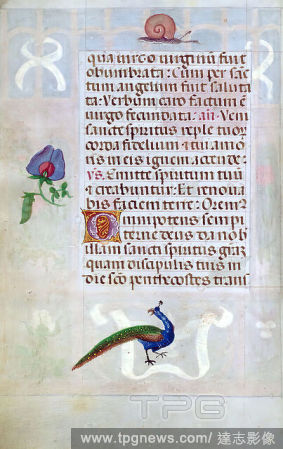 qua virgo virginū fuit
obumbrata: Cum per sāc
tum angelium fuit saluta
ta: Verbum caro factum ē
virgo fecundata: añ. Veni
sancte spiritus reple tuoꝝ
corda fidelium et tui amo
ris in eis ignem accende
V̄s. Emitte spiritum tuū
et creabuntur: Et renova
bis faciem terre: Oremꝰ
Omnipotens sempi
terne deus da nob
illam sancti spiritus gr̄az
quam discipulis tuis in
die sc̄o penthecostes trans
TPG
www.tpgnews.com/ 達志影像